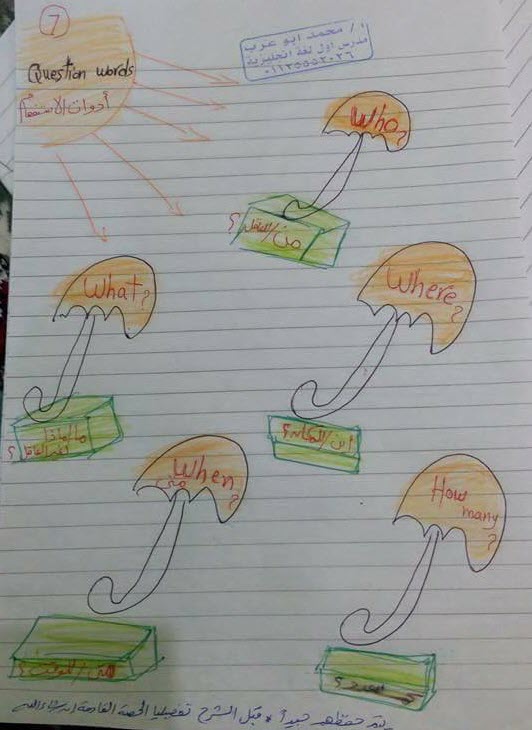 7
Question words
أدوات الاستفهام
أ / محمد ابو عرب
مدرس اول لغة انجليزية
Who?
من / للعاقل ؟
What?
ما / ماذا
لغير العاقل ؟
Where?
اين / المكان ؟
When
متى ?
متى / للوقت ؟
How
many
?
كم للعدد ؟
يتم حفظهم جيداً قبل الشرح تفصيليا الحصة القادمة ان شاء الله